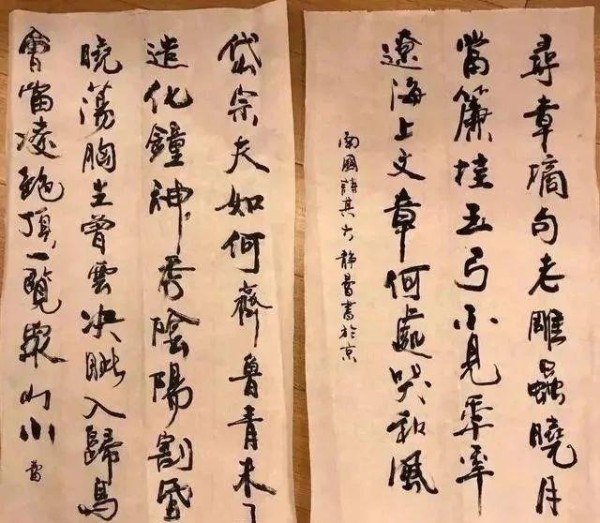 尋章摘句老雕蟲曉月
當簾挂玉弓不見秊秊
遼海上文章何處哭秋風
南國其靜書於京
岱宗夫如何齊魯青未了
造化鐘神秀陰陽割昏
曉蕩胸生曾雲決眦入歸鳥
會當凌絕頂一覽衆山小